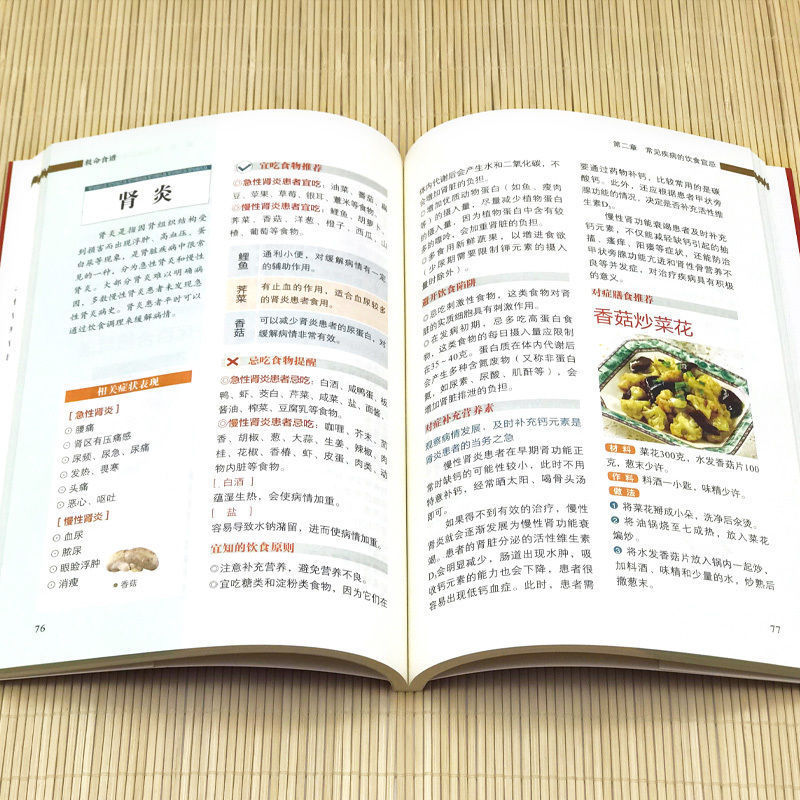 救命食谱
肾炎
肾炎是指因肾组织结构受
到损害而出现浮肿、高血压、蛋
白尿等现象,是肾脏疾病中很常
见的一种,分为急性肾炎和慢性
肾炎。大部分肾炎难以明确病
因,多数慢性肾炎患者未发现急
性肾炎病史。肾炎患者平时可以
通过饮食调理来缓解病情。
相关症状表现
[急性肾炎]
⊙腰痛
⊙肾区有压痛感
⊙尿频、尿急、尿痛
⊙发热、畏寒
⊙头痛
⊙恶心、呕吐
[慢性肾炎]
⊙血尿
⊙脓尿
⊙眼睑浮肿
⊙消瘦
●香菇
76
宜吃食物推荐
◎急性肾炎患者宜吃:油菜、番茄、扁
豆、苹果、草莓、银耳、薏米等食物。
◎慢性肾炎患者宜吃:鲤鱼、胡萝卜、
荠菜、香菇、洋葱、橙子、西瓜、山
楂、葡萄等食物。
鲤鱼
通利小便,对缓解病情有一定
的辅助作用。
荠菜
有止血的作用,适合血尿较多
的肾炎患者食用。
香菇
可以减少肾炎患者的尿蛋白,对
缓解病情非常有效。
忌吃食物提醒
◎急性肾炎患者忌吃:白酒、咸鸭蛋、板
鸭、虾、茭白、芹菜、咸菜、盐、面酱、
酱油、榨菜、豆腐乳等食物。
◎慢性肾炎患者忌吃:咖喱、芥末、茴
香、胡椒、葱、大蒜、生姜、辣椒、肉
桂、花椒、香椿、虾、皮蛋、肉类、动
物内脏等食物。
[白酒]
蕴湿生热,会使病情加重。
[盐]
容易导致水钠潴留,进而使病情加重。
宜知的饮食原则
◎注意补充营养,避免营养不良。
◎宜吃糖类和淀粉类食物,因为它们在
第二章 常见疾病的饮食宜忌
体内代谢后会产生水和二氧化碳,不
会增加肾脏的负担。
◎增加优质动物蛋白(如鱼、瘦肉
等)的摄入量,尽量减少植物蛋白
的摄入量,因为植物蛋白中含有较
多的嘌呤,会加重肾脏的负担。
◎多食用新鲜蔬果,以增进食欲
(少尿期需要限制钾元素的摄入
量时除外)。
避开饮食陷阱
◎忌吃刺激性食物,这类食物对肾
脏的实质细胞具有刺激作用。
◎在发病初期,忌多吃高蛋白食
物,这类食物的每日摄入量应限制
在35~40克。蛋白质在体内代谢后
会产生多种含氮废物(又称非蛋白
氮,如尿素、尿酸、肌酐等),会
增加肾脏排泄的负担。
对症补充营养素
观察病情发展,及时补充钙元素是
肾炎患者的当务之急
慢性肾炎患者在早期肾功能正
常时缺钙的可能性较小,此时不用
特意补钙,经常晒太阳、喝骨头汤
即可。
如果得不到有效的治疗,慢性
肾炎就会逐渐发展为慢性肾功能衰
竭。患者的肾脏分泌的活性维生素
D₃会明显减少,肠道出现水肿,吸
收钙元素的能力也会下降,患者很
容易出现低钙血症。此时,患者需
要通过药物补钙,比较常用的是碳
酸钙。此外,还应根据患者甲状旁
腺功能的情况,决定是否补充活性维
生素D₃。
慢性肾功能衰竭患者及时补充
钙元素,不仅能减轻缺钙引起的抽
搐、瘙痒、阳痿等症状,还能防治
甲状旁腺功能亢进和肾性骨营养不
良等并发症,对治疗疾病具有积极
的意义。
对症膳食推荐
香菇炒菜花
材料 菜花300克,水发香菇片100
克,葱末少许。
作料 料酒一小匙,味精少许。
做法
1 将菜花掰成小朵,洗净后汆烫。
2 将油锅烧至七成热,放入菜花
煸炒。
3 将水发香菇片放入锅内一起炒,
加料酒、味精和少量的水,炒熟后
撒葱末。
77